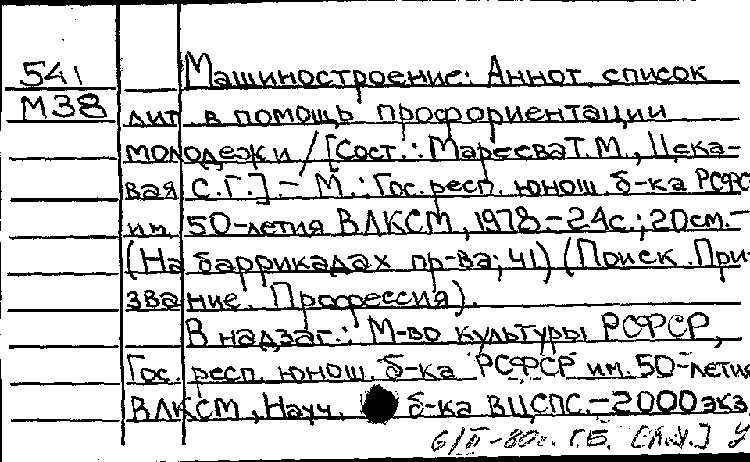 541 Машиностроение: Аннот. список
М38 лит. в помощь профориентации
молодежи / [Сост.: Мареева Т.М., Цека-
вая С.Г.] – М.: Гос. респ. юнош. б-ка РСФС
им. 50-летия ВЛКСМ, 1978 – 24с.; 20см. –
(На баррикадах пр-ва; 41) (Поиск. При-
звание. Профессия).
В надзаг.: М-во культуры РСФСР,
Гос. респ. юнош. б-ка РСФСР им. 50-летия
ВЛКСМ, Науч. б-ка ВЦСПС. – 2000 экз
6/II-80г. Г.Б.